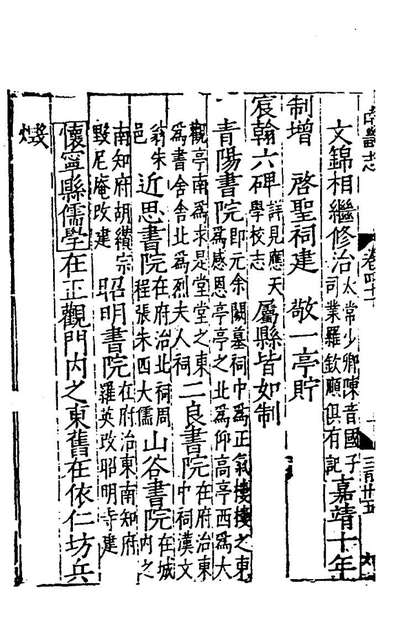 文錦相繼修治太常少卿陳音國子司業羅欽順俱有記嘉靖十年
制增 啓聖祠建 敬一亭貯
宸翰六碑詳見應天學校志 屬縣皆如制
青陽書院即元余闕墓祠中爲正氣樓樓之東爲感恩亭亭之北爲仰高亭西爲大
觀亭南爲求是堂堂之東爲書舍舍北爲烈夫人祠二良書院在府治東中祠漢文
翁朱邑近思書院在府治北祠周程張朱四大儒山谷書院在城內之
南知府胡纘宗毀尼庵改建昭明書院在府治東南知府羅英改昭明寺建
懷寧縣儒學在正觀門內之東舊在依仁坊兵
燬